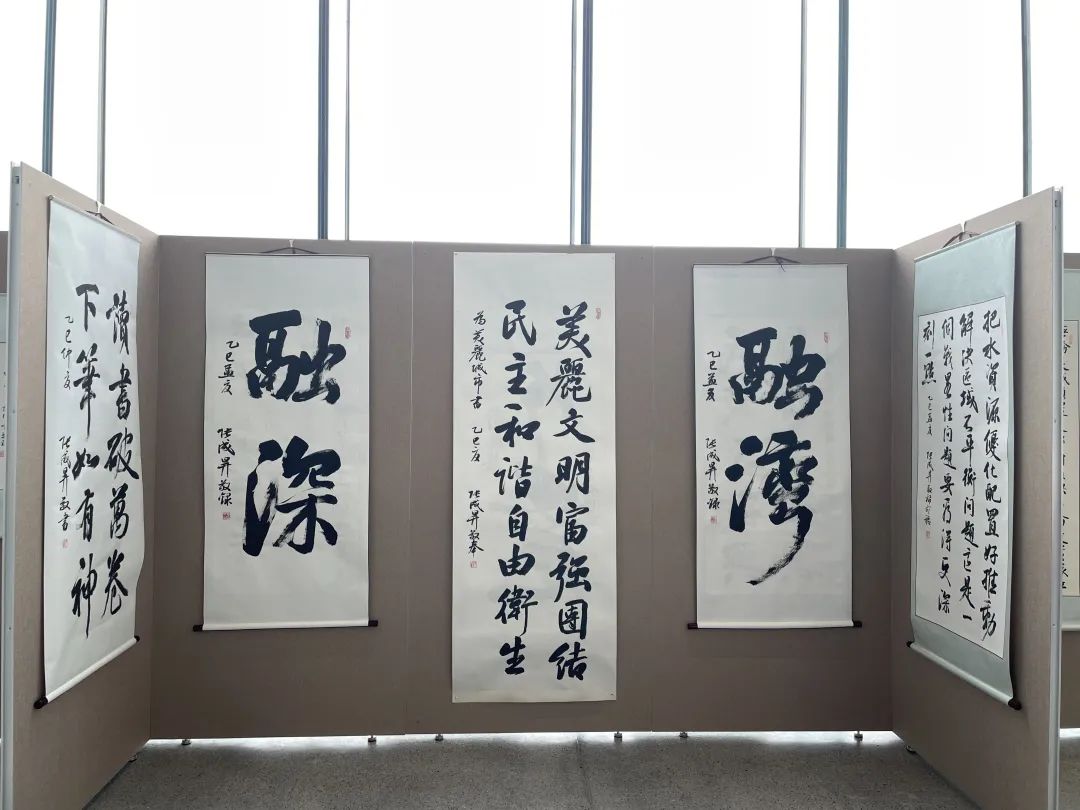 讀書破萬卷
下筆如有神
乙巳仲夏 张成昇敬書
融深
乙巳孟夏 张成昇敬録
美麗文明富强團结
民主和谐自由衛生
为美麗城市書 乙巳夏 张成昇敬奉
融灣
乙巳孟夏 张成昇敬録
把水資源優化配置好推動
解决區域不平衡问题这是一
個战略性问题要看得更深
刻一點
乙巳孟夏 张成昇敬